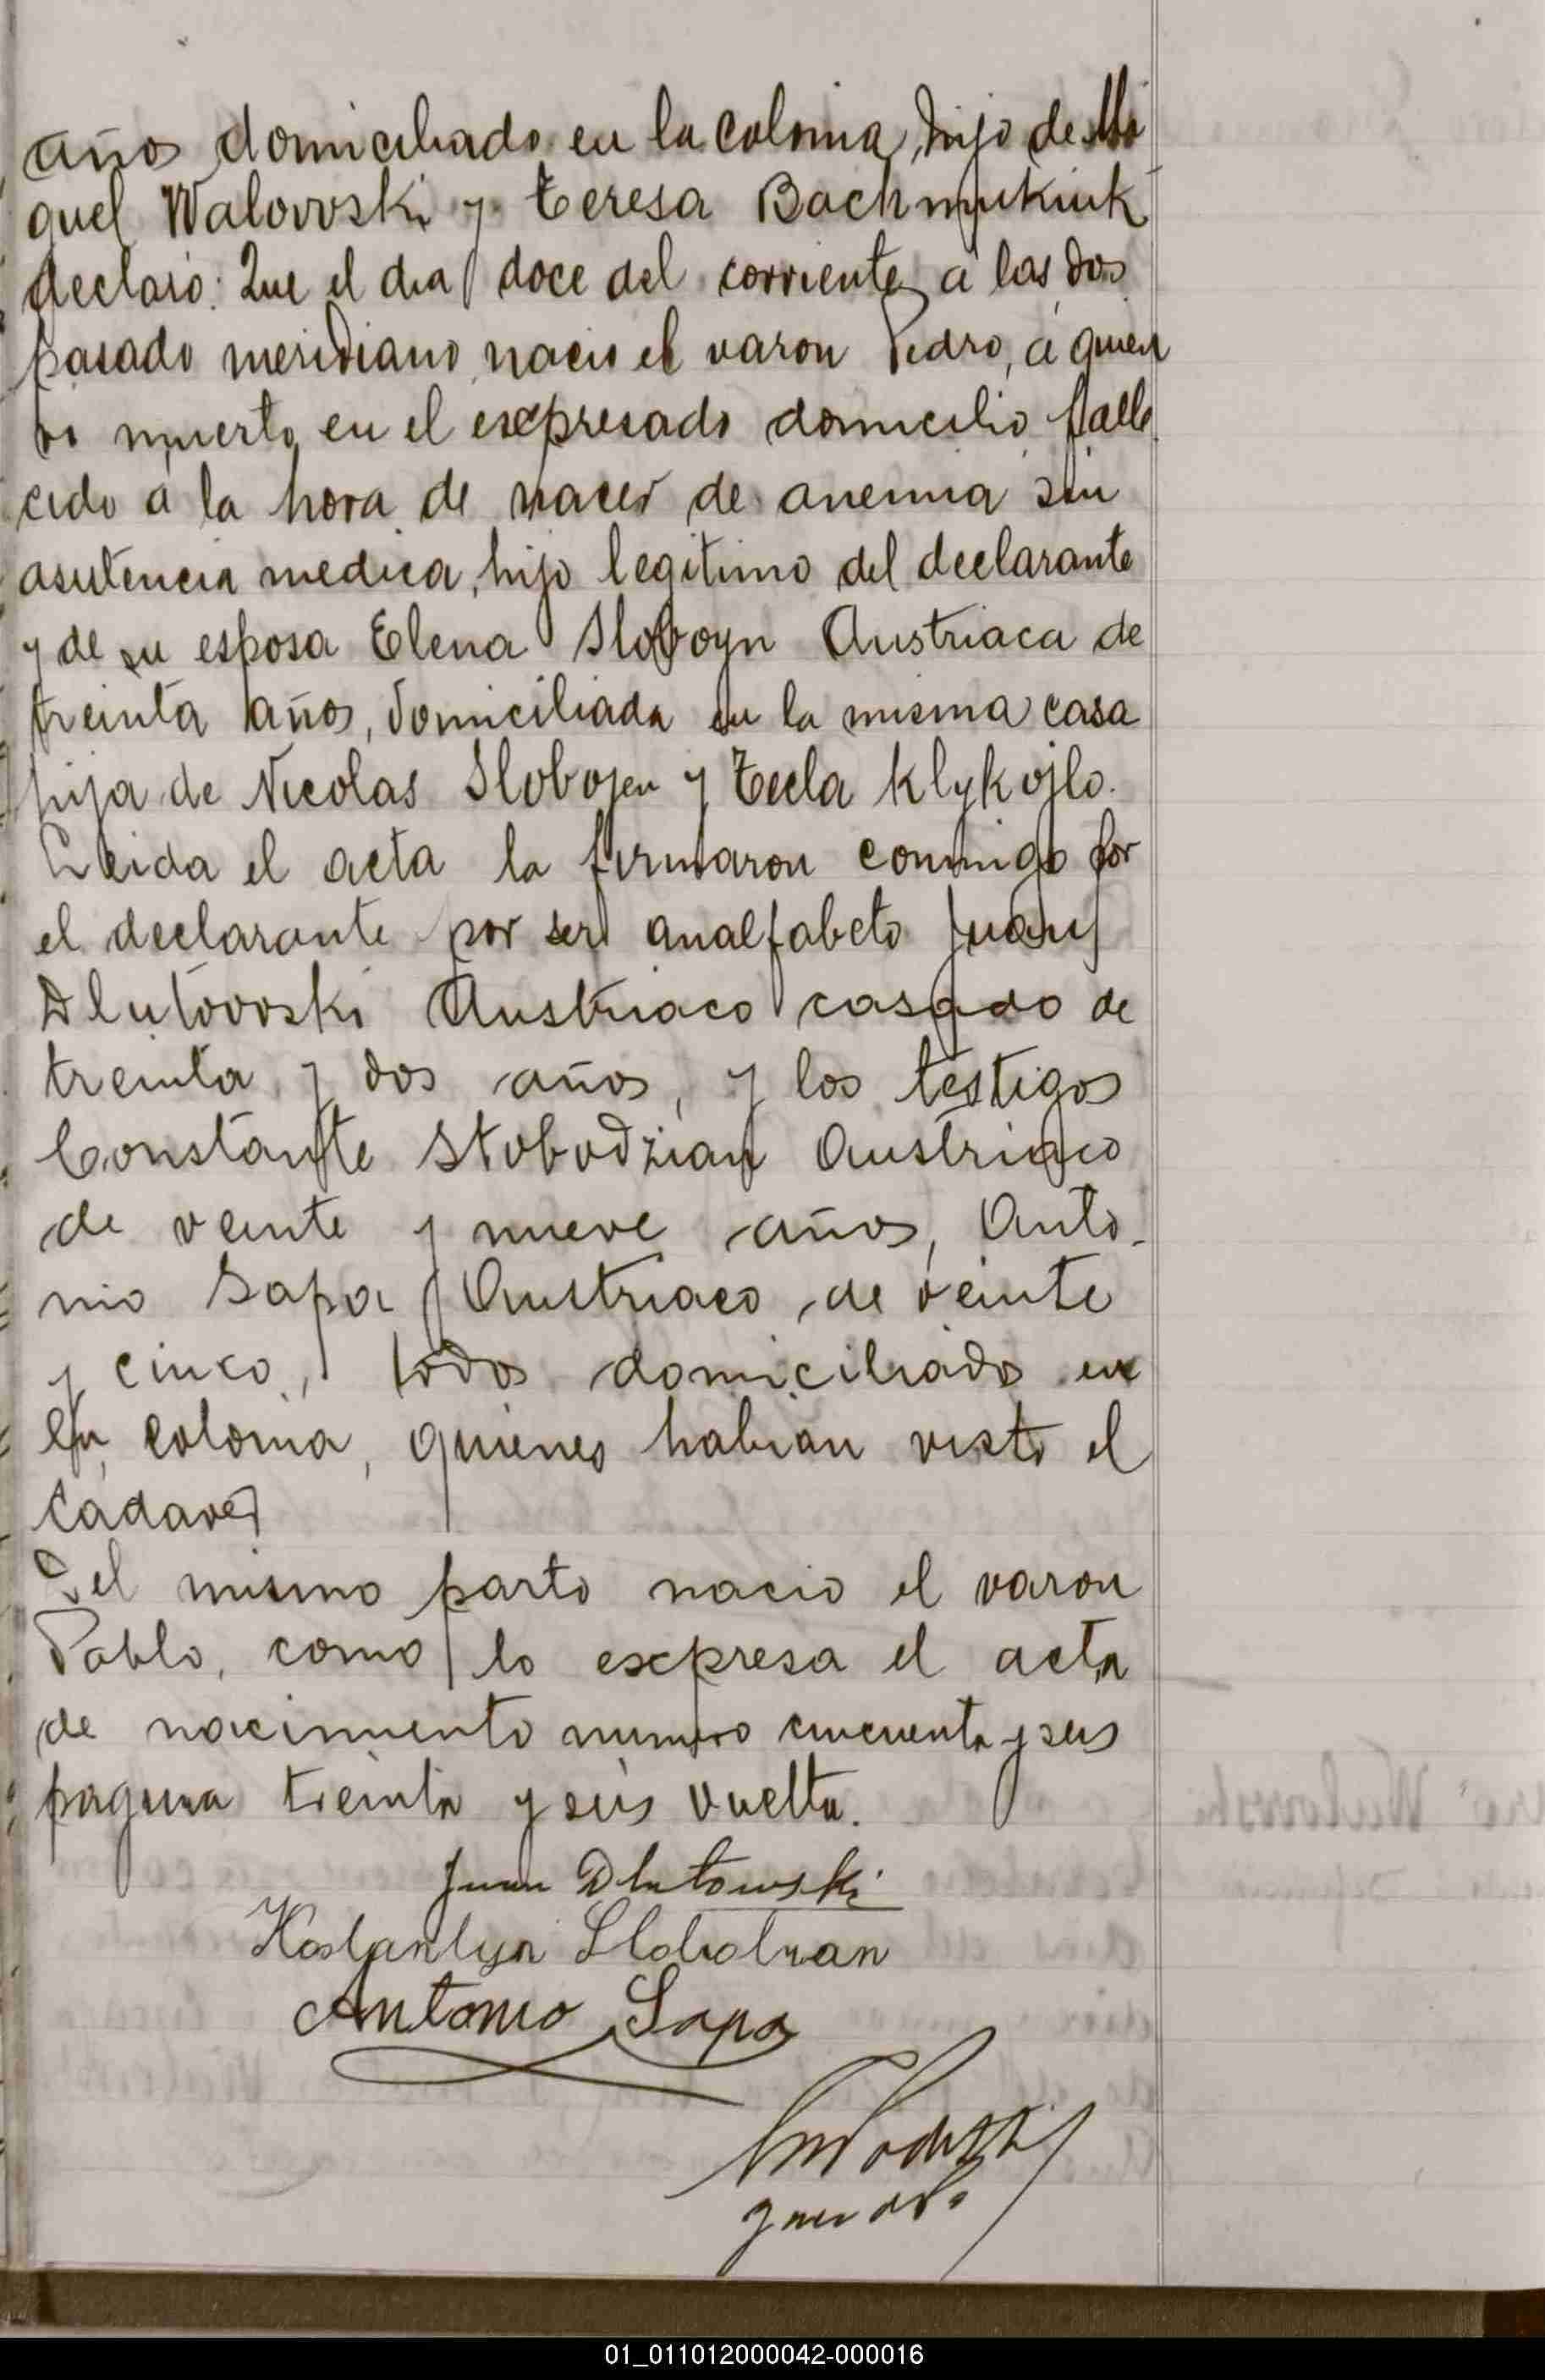 años domiciliado en la Colonia, hijo de Mi
guel Walovvski y Teresa Bachmukiuk
declaró: Que el dia doce del corriente a las dos
pasado meridiano nacio el varon Pedro, á quien
vi muerto en el expresado domicilio falle
cido á la hora de nacer de anemia sin
asistencia medica, hijo legitimo del declarante
y de su esposa Elena Slovoyn Austriaca de
treinta años, domiciliada en la misma casa
hija de Nicolas Slobojen y Tecla Klykojlo.
Leida el acta la firmaron conmigo por
el declarante por ser analfabeto Juan
Dlutovvski Austriaco casado de
treinta y dos años, y los testigos
Constante Stobodzian Austriaco
de veinte y nueve años, Anto-
nio Sapa Austriaco, de veinte
y cinco, todos domiciliados en
la colonia, quienes habian visto el
cadaver
Del mismo parto nacio el varon
Pablo, como lo expresa el acta
de nacimiento numero cincuenta y seis
pagina treinta y seis vuelta.
Juan Dlutowski
Kostantyn Slobotzan
Antonio Sapa
01_011012000042-000016